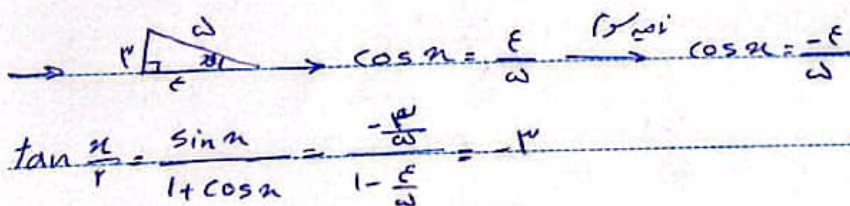 → ۳ ۵ ۴ x → cos x = ۴/۵ ناحیه سوم → cos x = -۴/۵
tan x/۲ = sin x / ۱ + cos x = -۳/۵ / ۱ - ۴/۵ = -۳